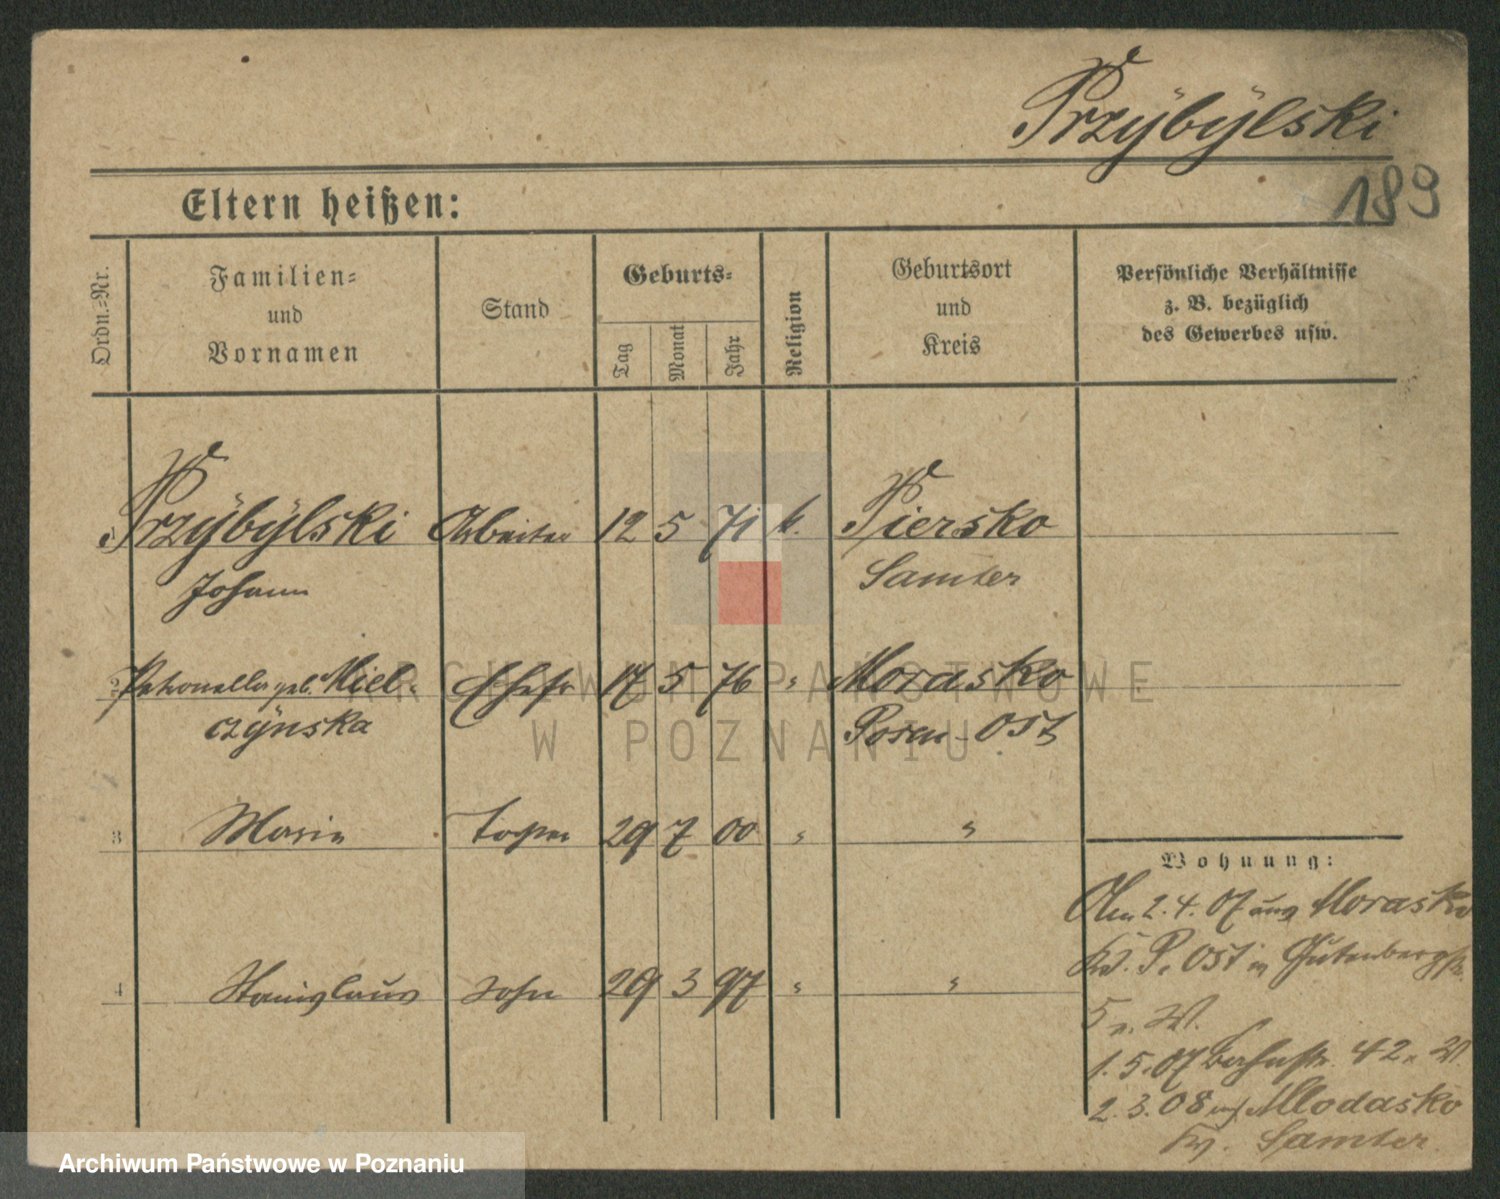 Przÿbÿlski
189
Eltern heißen:
Ordn.=Nr.
Familien=
und
Vornamen
Stand
Geburts=
Tag
Monat
Jahr
Religion
Geburtsort
und
Kreis
Persönliche Verhältnisse
z. B. bezüglich
des Gewerbes usw.
Przÿbÿlski Arbeiter 12 5 71 k. Piersko
Johann Samter
2 Petronella geb. Miel- Ehefr 17 5 76 " Morasko
czÿnska Posen-Ost
3 Marie Tochter 29 7 00 " "
4 Stanislaus Sohn 29 3 97 " "
Wohnung:
Am 2.4.07 aus Morasko
Kr. P. Ost in Gutenbergstr.
5 n. W.
1.5.07 42 n. W.
2.3.08 nach Mlodasko
Kr. Samter
ARCHIWUM PAŃSTWOWE
W POZNANIU
Archiwum Państwowe w Poznaniu